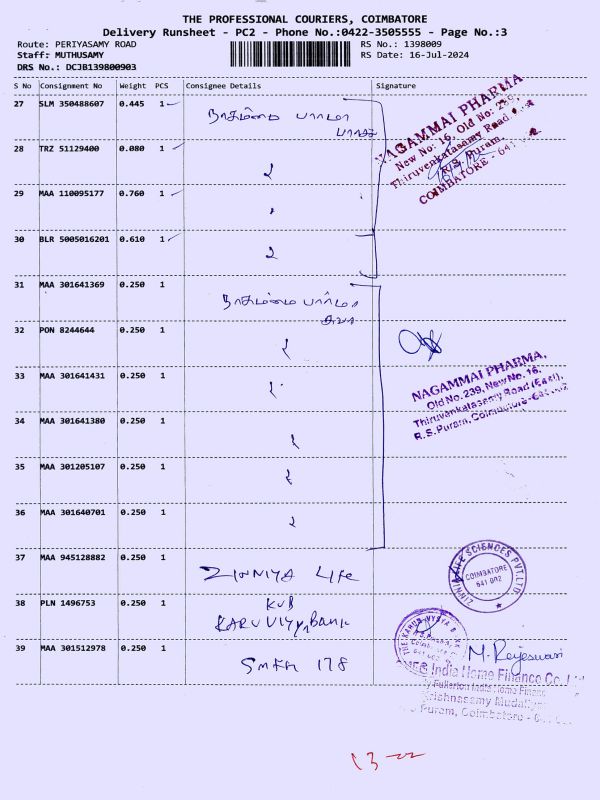 THE PROFESSIONAL COURIERS, COIMBATORE
Delivery Runsheet - PC2 - Phone No.:0422-3505555 - Page No.:3
Route: PERIYASAMY ROAD
Staff: MUTHUSAMY
DRS No.: DCJB139800903
RS No.: 1398009
RS Date: 16-Jul-2024
S No Consignment No Weight PCS Consignee Details Signature
27 SLM 350488607 0.445 1 நாகம்மை பார்மா
NAGAMMAI PHARMA
New No: 16, Old No: 239,
Thiruvenkatasamy Road
R.S. Puram,
COIMBATORE - 641
28 TRZ 51129400 0.080 1
29 MAA 110095177 0.760 1
30 BLR 5005016201 0.610 1
31 MAA 301641369 0.250 1 நாகம்மை பார்மா
32 PON 8244644 0.250 1
33 MAA 301641431 0.250 1
NAGAMMAI PHARMA,
Old No.239, New No. 16,
Thiruvenkatasamy Road (East),
R.S. Puram, Coimbatore-641
34 MAA 301641380 0.250 1
35 MAA 301205107 0.250 1
36 MAA 301640701 0.250 1
37 MAA 945128882 0.250 1 ZINNIYA LIFE
LIFE SCIENCES PVT.LTD
COIMBATORE
641 002
38 PLN 1496753 0.250 1 KVB
Bank
39 MAA 301512978 0.250 1 SMFH 178
M. Rajeswari
India Home Finance Co.
Fullerton India Home Finance
Krishnasamy Mudaliyar
Puram, Coimbatore - 6
13-22